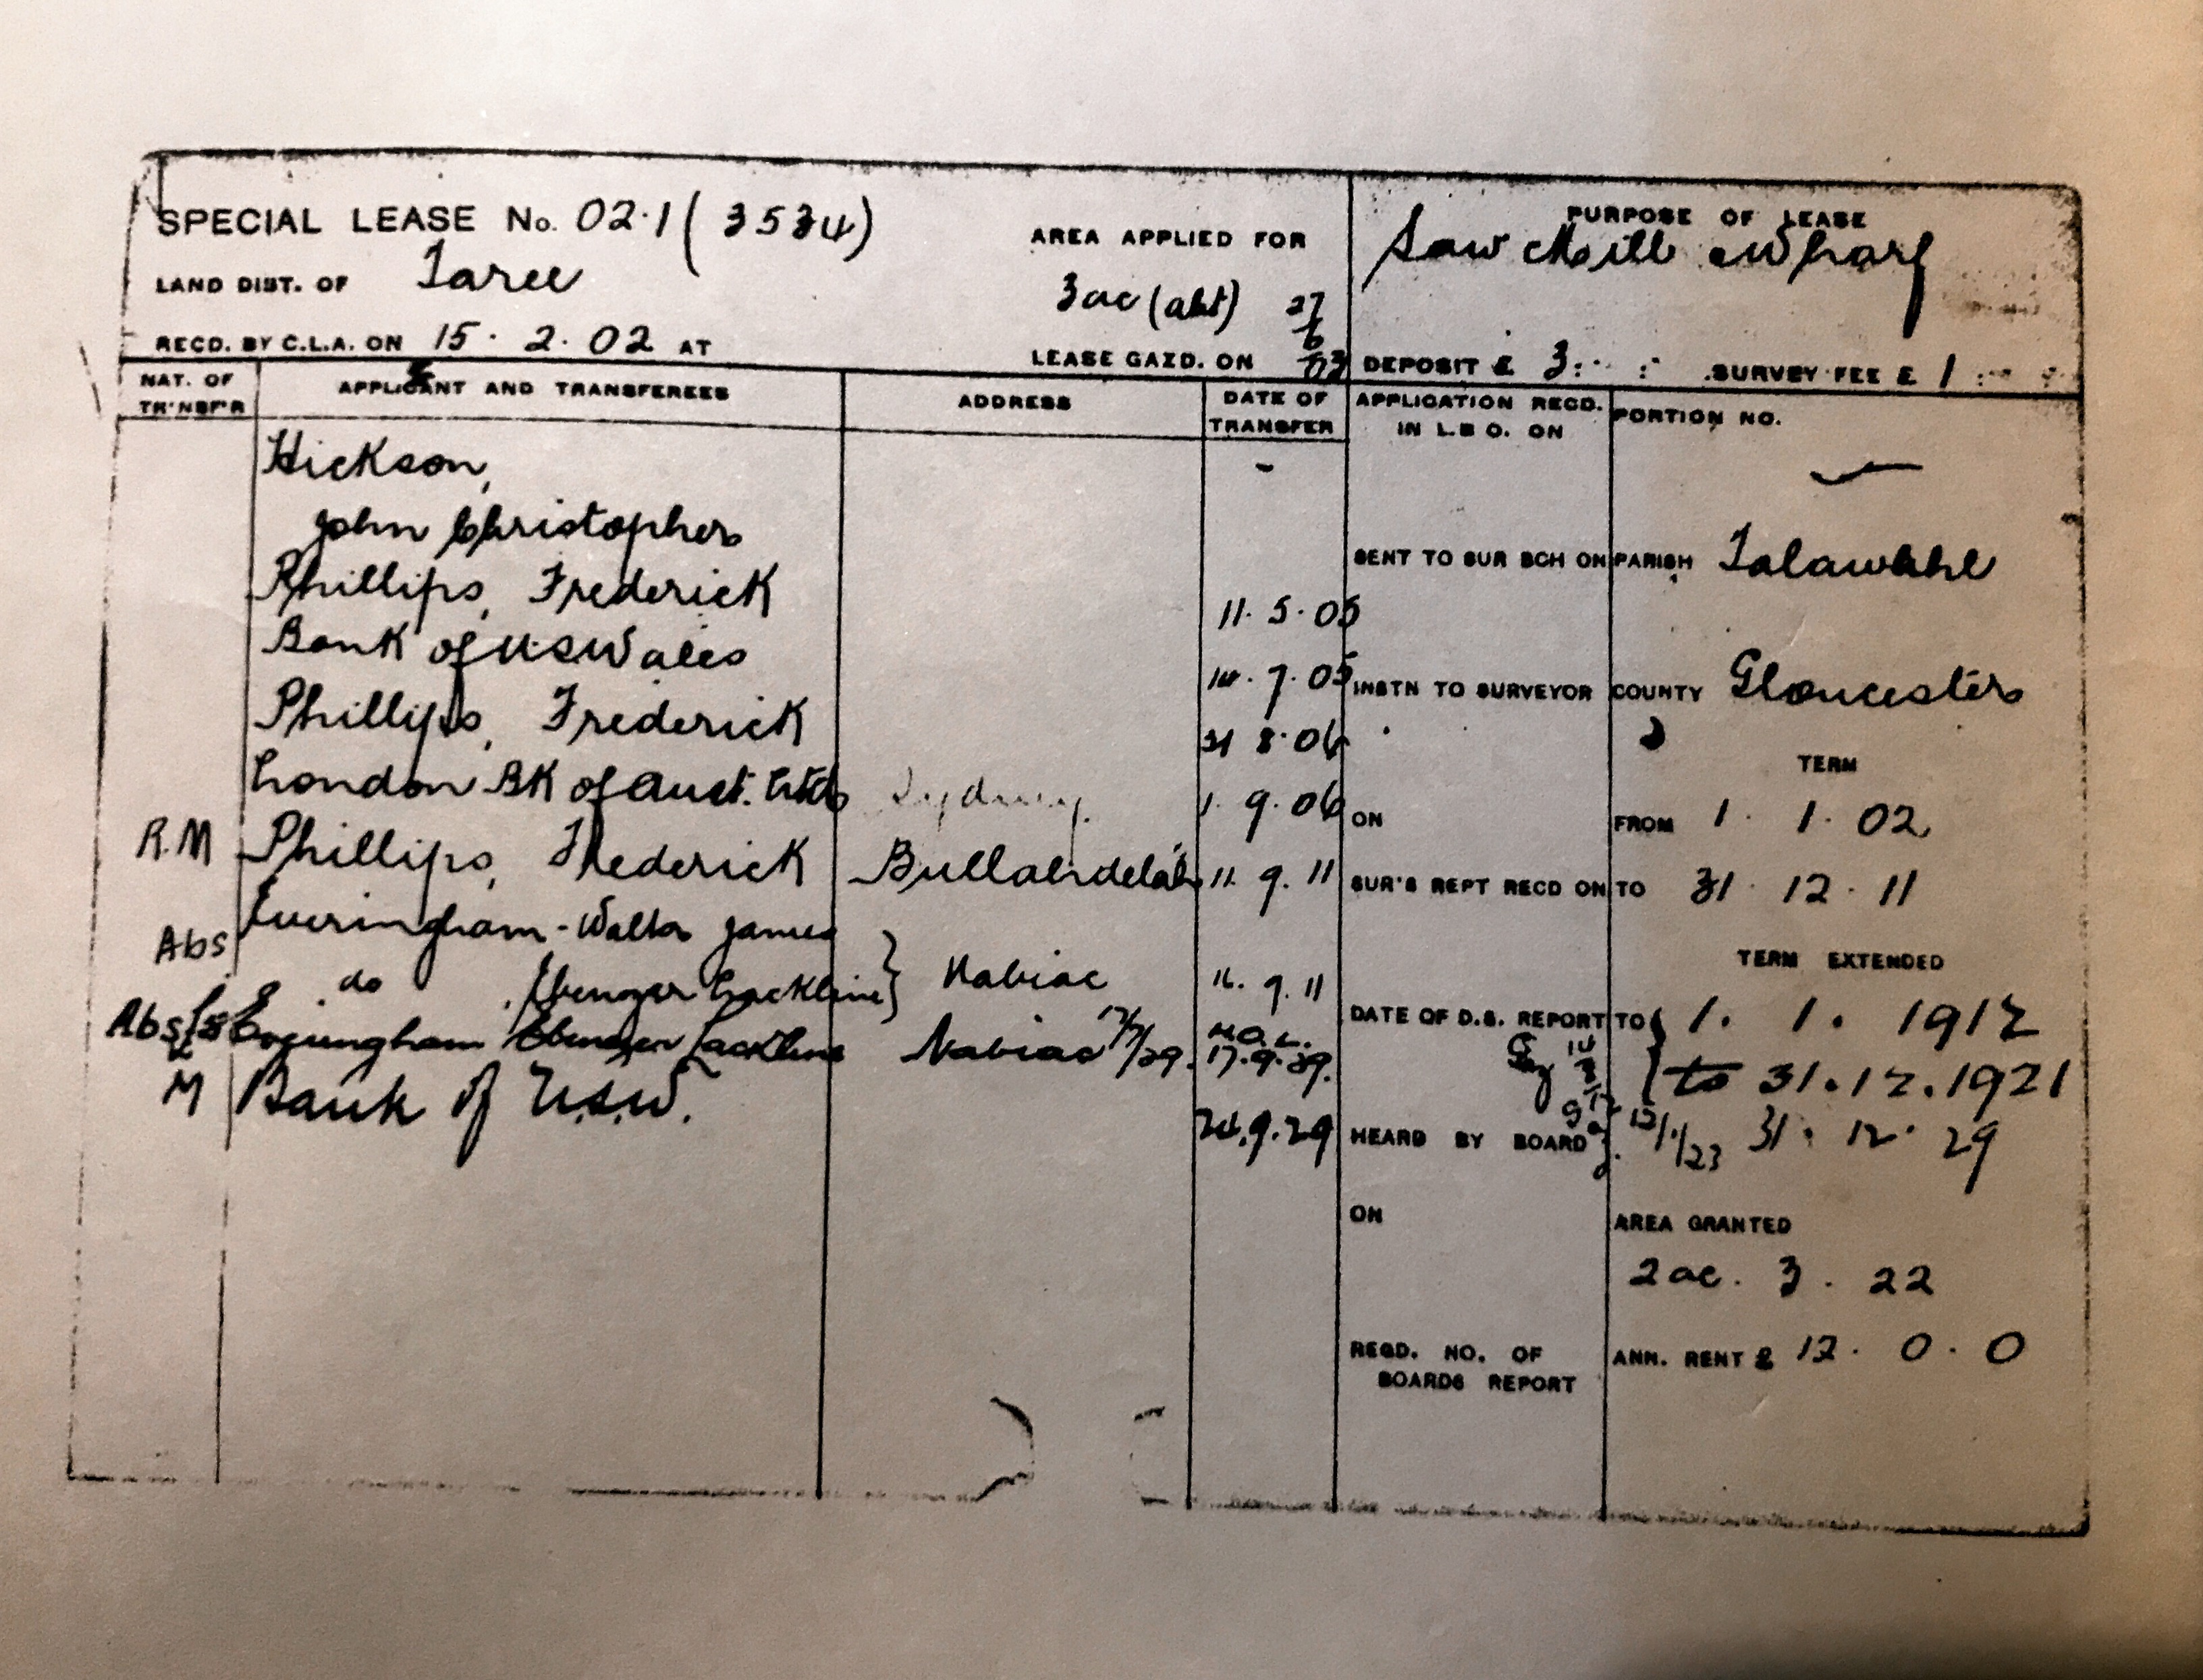 SPECIAL LEASE No. 02.1 (3534)
LAND DIST. OF Taree
RECD. BY C.L.A. ON 15. 2. 02 AT
AREA APPLIED FOR
3ac (abt)
LEASE GAZD. ON 27/6/02
PURPOSE OF LEASE
Saw Mill & Wharf
DEPOSIT £ 3: : SURVEY FEE £ 1 :
NAT. OF TR'NSF'R
APPLICANT AND TRANSFEREES
ADDRESS
DATE OF TRANSFER
Hickson, -
John Christopher
Phillips, Frederick 11. 5. 05
Bank of N.S.Wales 14. 7. 05
Phillips, Frederick 31 8. 06
London Bk of Aust. Ltd Sydney. 1. 9. 06
R.M Phillips, Frederick Bullahdelah 11. 9. 11
Abs Everingham - Walter James
do Ebenezer Lockline } Nabiac 16. 9. 11
Abs Everingham Ebenezer Lockline Nabiac 17/9/29. 17.9.29.
M Bank of N.S.W. 24.9.29
APPLICATION RECD. IN L.B O. ON
SENT TO SUR BCH ON
INSTN TO SURVEYOR
ON
SUR'S REPT RECD ON
DATE OF D.S. REPORT
HEARD BY BOARD
ON
REGD. NO. OF
BOARDS REPORT
PORTION NO.
PARISH Talawahl
COUNTY Gloucester
TERM
FROM 1. 1. 02
TO 31. 12. 11
TERM EXTENDED
TO { 1. 1. 1912
{ to 31.12.1921
31. 12. 29
AREA GRANTED
2 ac. 3. 22
ANN. RENT £ 12. 0. 0